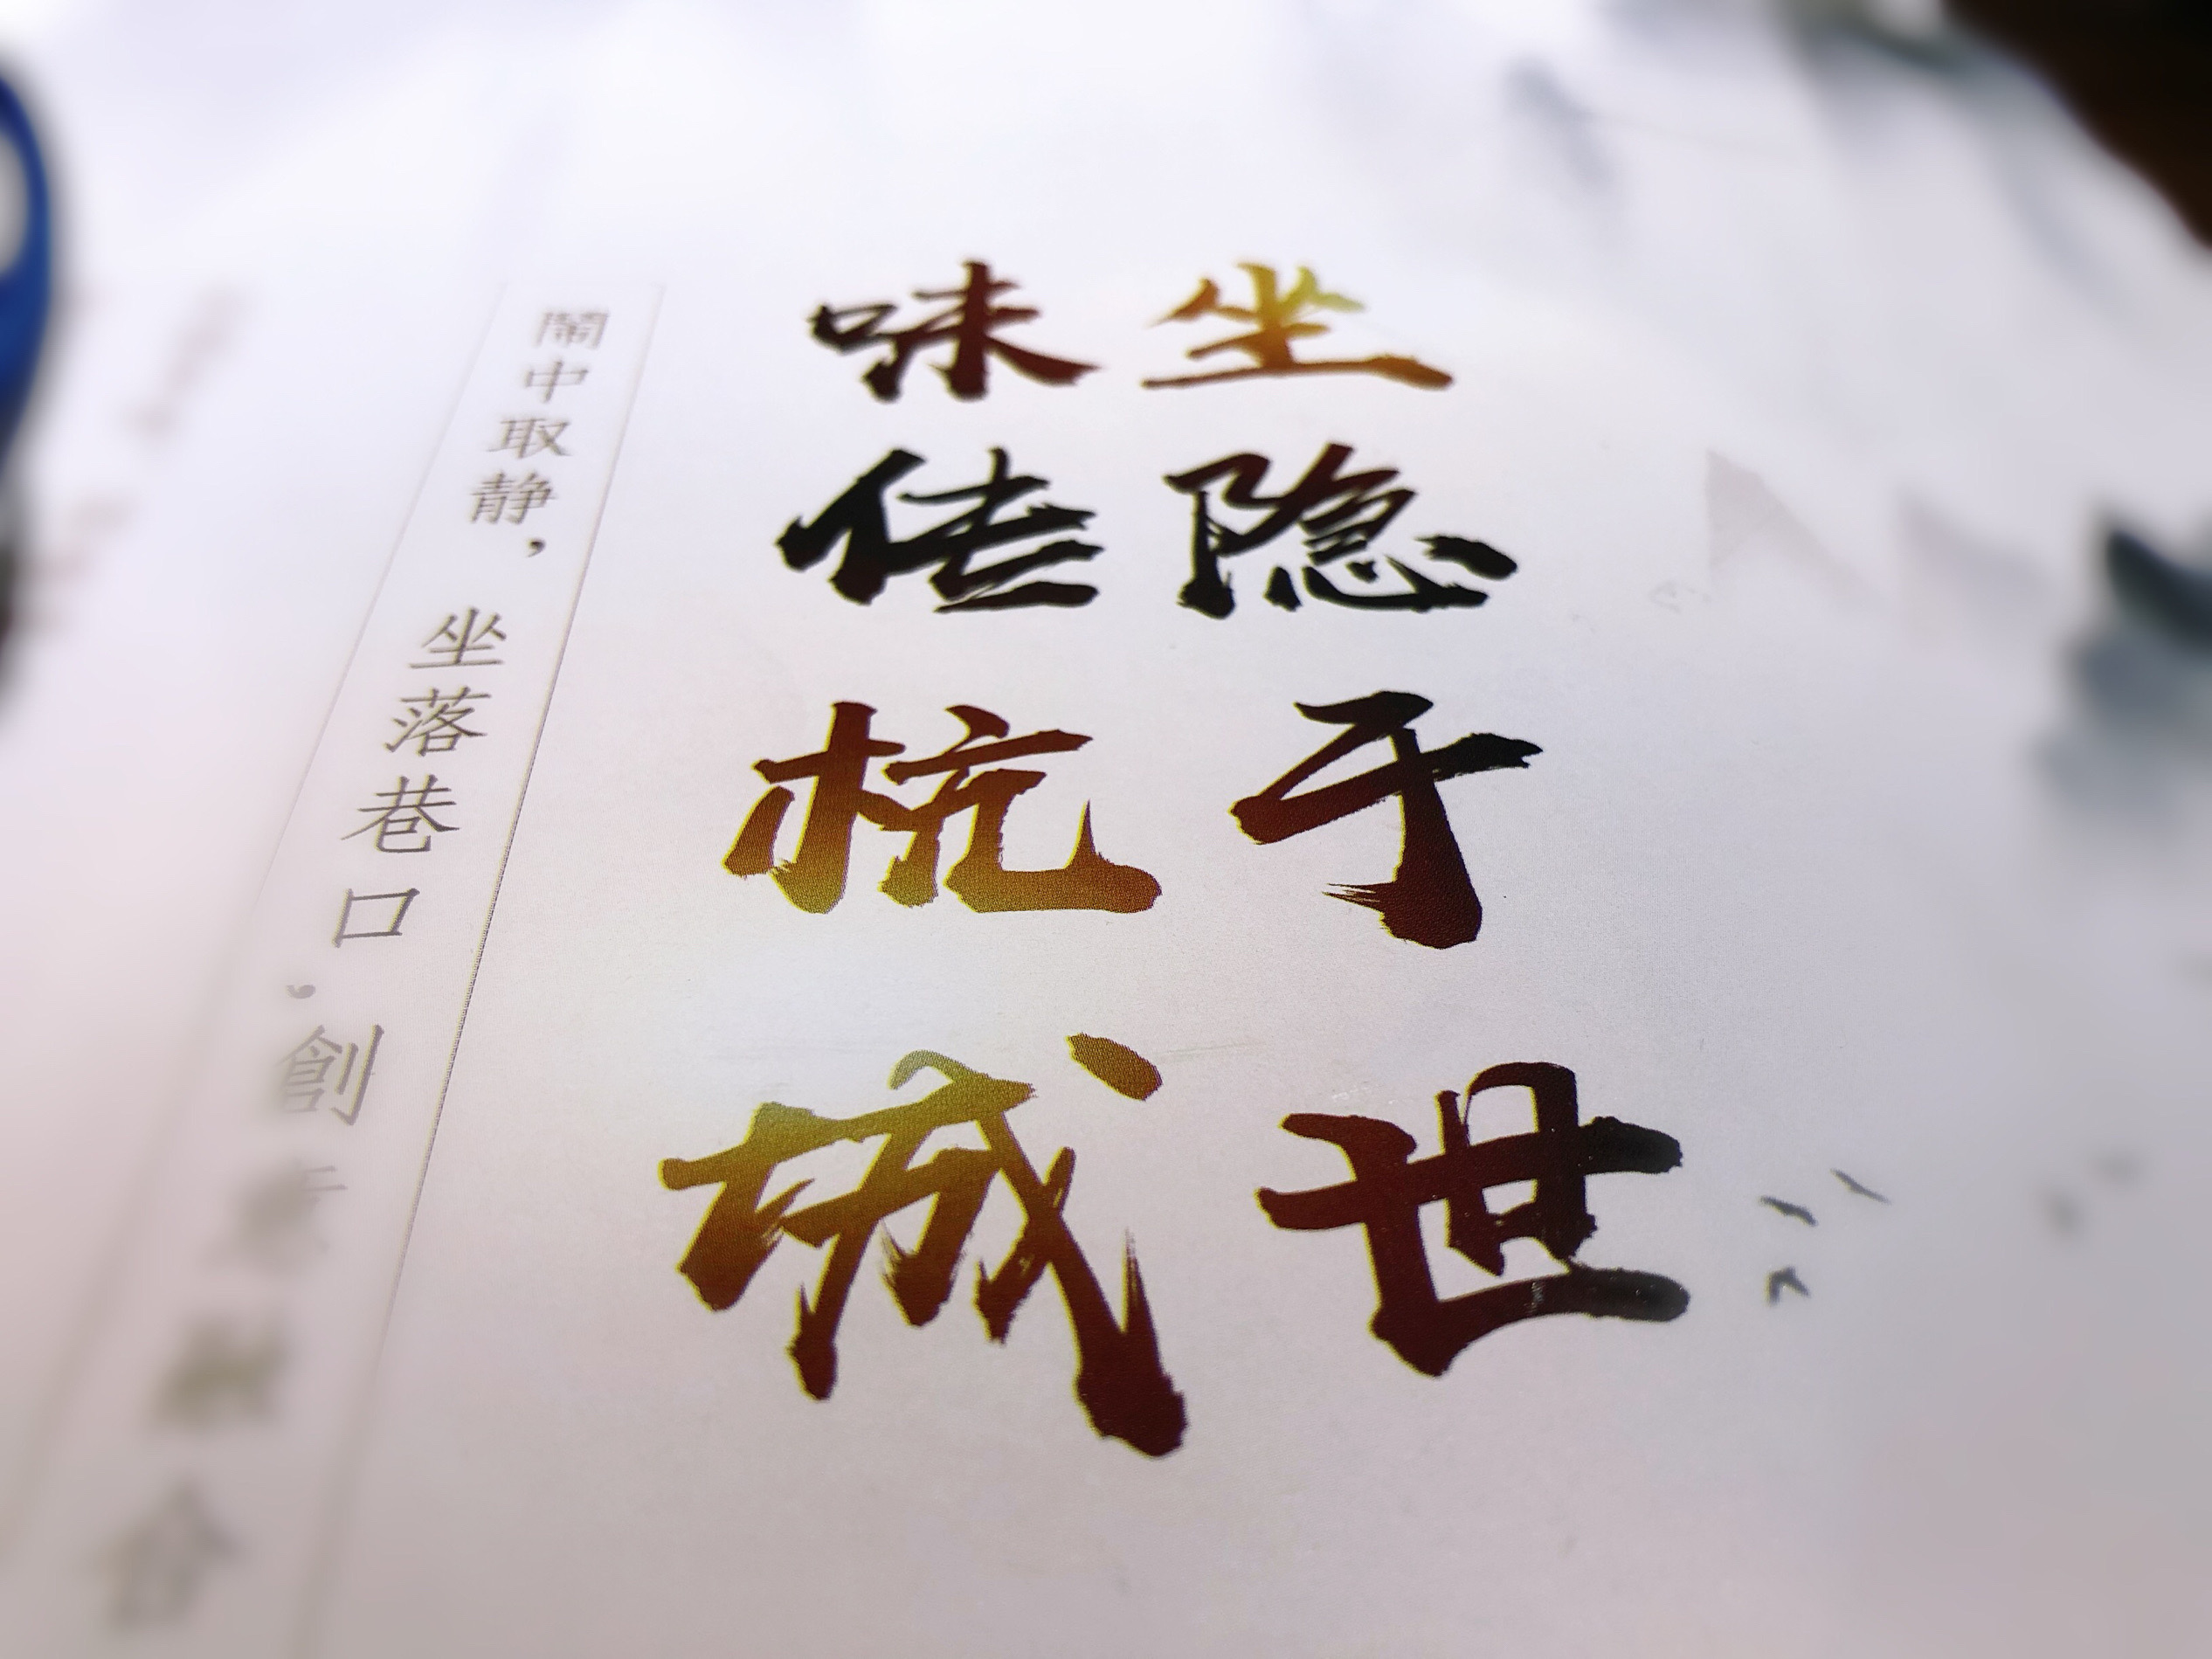 坐隐于世
味传杭城
鬧中取静，坐落巷口.創